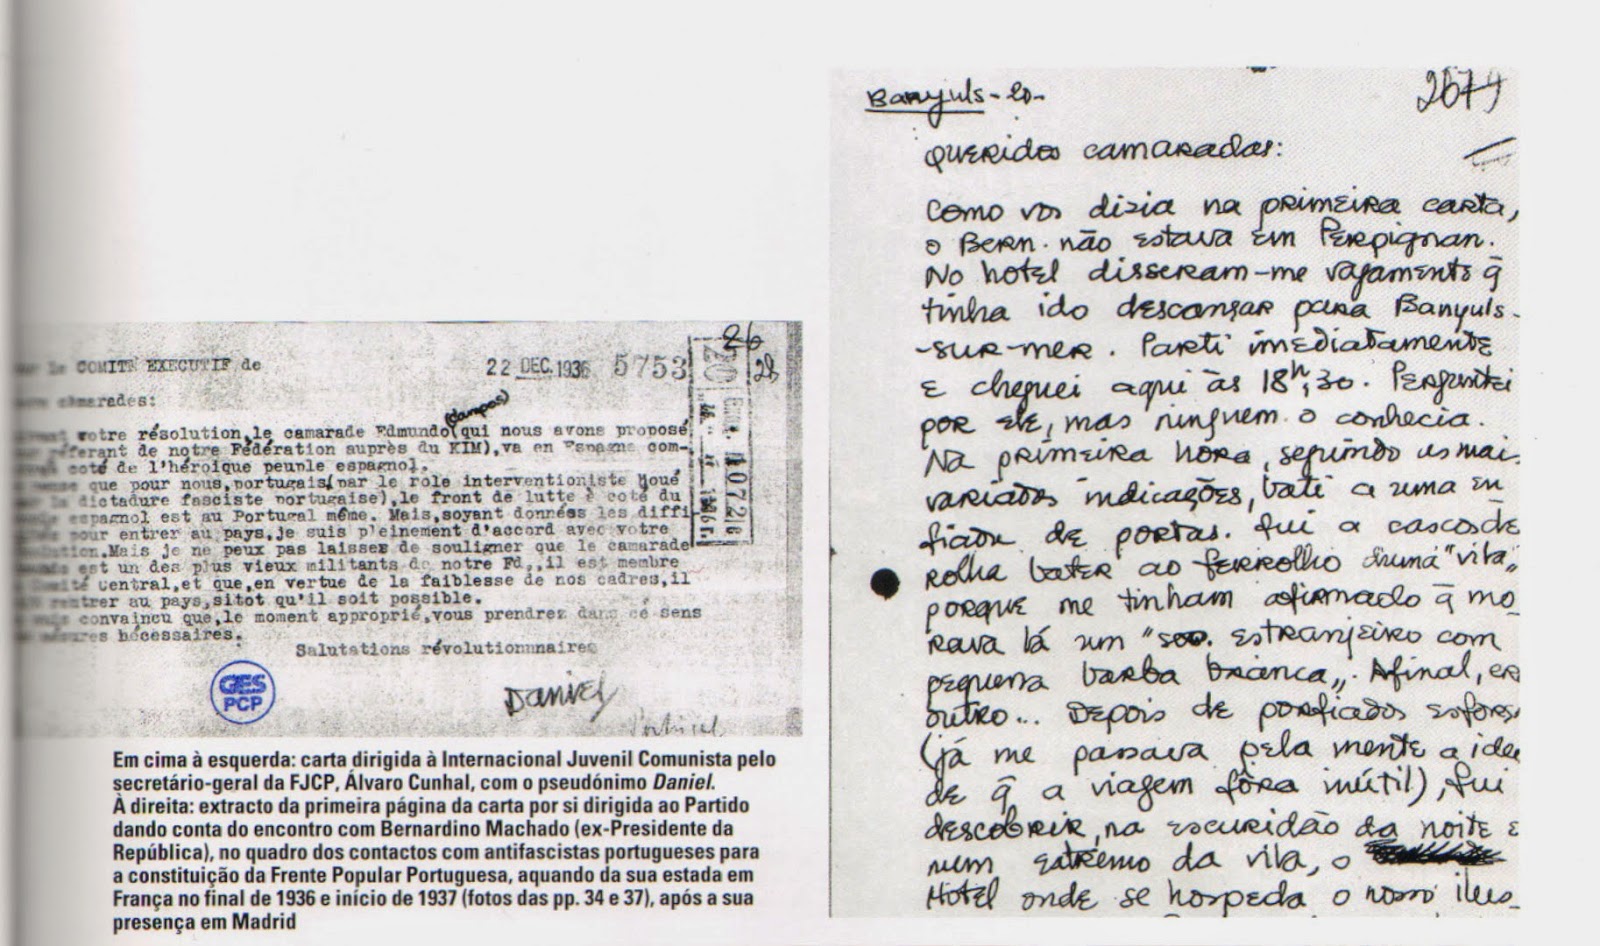 COMITÉ EXECUTIF de
22 DEC. 1936 5753
26
28
20
10726
camarades:
(Campos)
votre résolution, le camarade Edmundo (qui nous avons proposé
de notre Fédération auprès du KIM), va en Espagne com-
coté de l'héroique peuple espagnol.
que pour nous, portugais (par le role interventioniste joué
dictadure fasciste portugaise), le front de lutte è coté du
espagnol est au Portugal même. Mais, soyant données les diffi
pour entrer au pays, je suis pleinement d'accord avec votre
Mais je ne peux pas laisser de souligner que le camarade
est un des plus vieux militants de notre Fd., il est membre
Central, et que, en vertue de la faiblesse de nos cadres, il
rentrer au pays, sitot qu'il soit possible.
convaincu que, le moment approprié, vous prendrez dans ce sens
mesures nécessaires.
Salutations révolutionnaires
GES
PCP
Daniel
Em cima à esquerda: carta dirigida à Internacional Juvenil Comunista pelo
secretário-geral da FJCP, Álvaro Cunhal, com o pseudónimo Daniel.
À direita: extracto da primeira página da carta por si dirigida ao Partido
dando conta do encontro com Bernardino Machado (ex-Presidente da
República), no quadro dos contactos com antifascistas portugueses para
a constituição da Frente Popular Portuguesa, aquando da sua estada em
França no final de 1936 e início de 1937 (fotos das pp. 34 e 37), após a sua
presença em Madrid
Banyuls - 20 -
2674
Queridos camaradas:
Como vos dizia na primeira carta,
o Bern. não estava em Perpignan.
No hotel disseram-me vagamente q̄
tinha ido descansar para Banyuls-
-sur-mer. Parti imediatamente
e cheguei aqui às 18h,30. Perguntei
por ele, mas ninguem o conhecia.
Na primeira hora, seguindo as mais
variadas indicações, bati a uma en
fiada de portas. Fui a cascos de
rolha bater ao ferrolho duma "vila„
porque me tinham afirmado q̄ mo-
rava lá um "sr. estranjeiro com
pequena barba branca„. Afinal, era
outro... Depois de porfiados esfor
(já me passava pela mente a idea
de q̄ a viagem fôra inútil), fui
descobrir, na escuridão da noite e
num extremo da vila, o
Hotel onde se hospeda o nosso ilus-